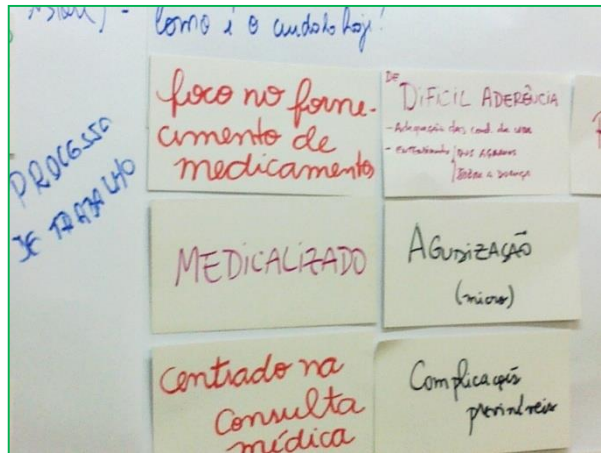 Como é o cuidado hoje?
PROCESSO
DE TRABALHO
foco no forne-
cimento de
medicamento
DE
DIFICIL ADERÊNCIA
- Adequação das cond. de vida
DOS AGRAVOS
SOBRE A DOENÇA
MEDICALIZADO
AGUDIZAÇÃO
(micro)
centrado na
consulta
médica
Complicações
previníveis